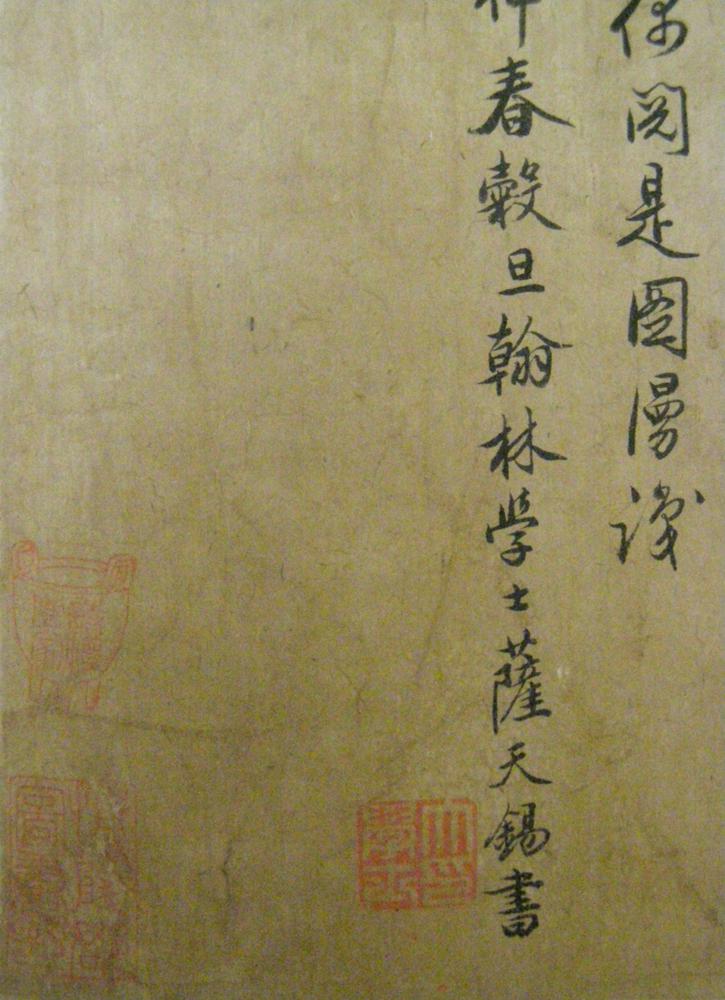 偶閱是圖漫識
春穀旦翰林學士薩天錫書